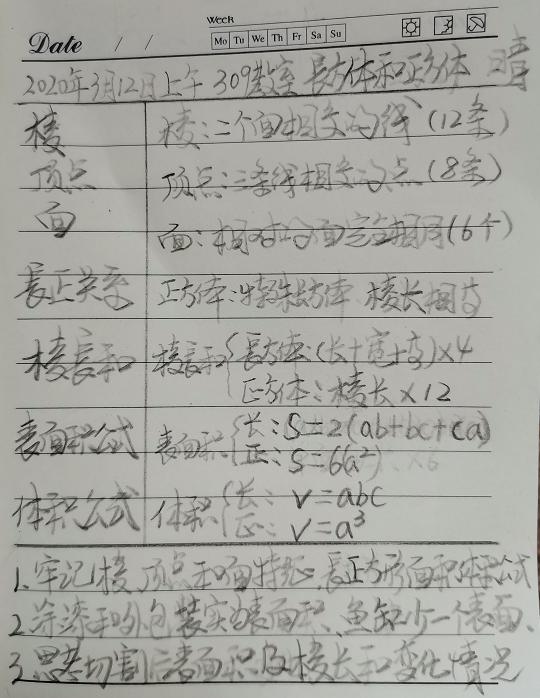 Week
Mo Tu We Th Fr Sa Su
Date / /
2020年3月12日上午 309教室 長方体和正方体 晴
棱 棱:二个面相交的线(12条)
顶点 顶点:三条线相交的点(8条)
面 面:相对的面完全相同(6个)
長正关系 正方体:特殊長方体 棱长相
棱長和 棱長和{長方体:(长+宽+高)×4
正方体:棱长×12
表面积公式 表面积{长:S=2(ab+bc+ca)
正:S=6(a²)
体积公式 体积{长: V=abc
正: V=a³
1.牢记棱、顶点和面特征、長正方形面积体积公式
2.涂漆和外包装实为表面积、鱼缸少一个表面、
3.思考切割后表面积及棱长和变化情况